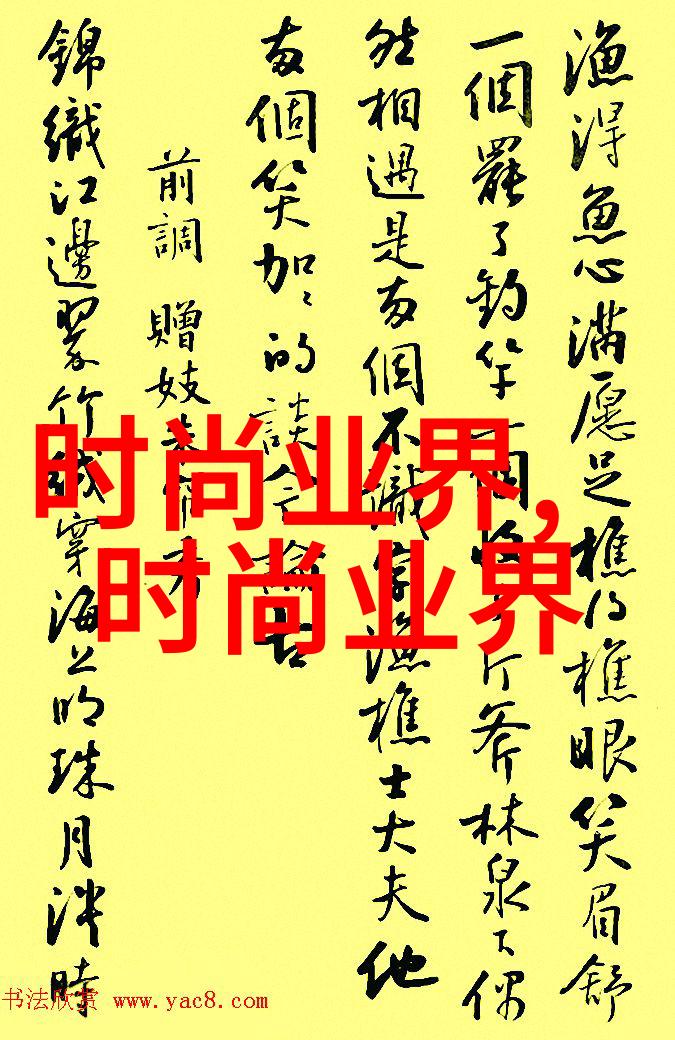 漁得魚心滿愿足樵得樵眼笑眉舒
一個罷了釣竿一個收了斤斧林泉下偶
然相遇是兩個不識字漁樵士大夫他
兩個笑加加的談今論古
前調 贈妓朱帘秀
錦織江邊翠竹絨穿海上明珠月淡時
时尚业界,
时尚业界
书法欣赏 www.yac8.com